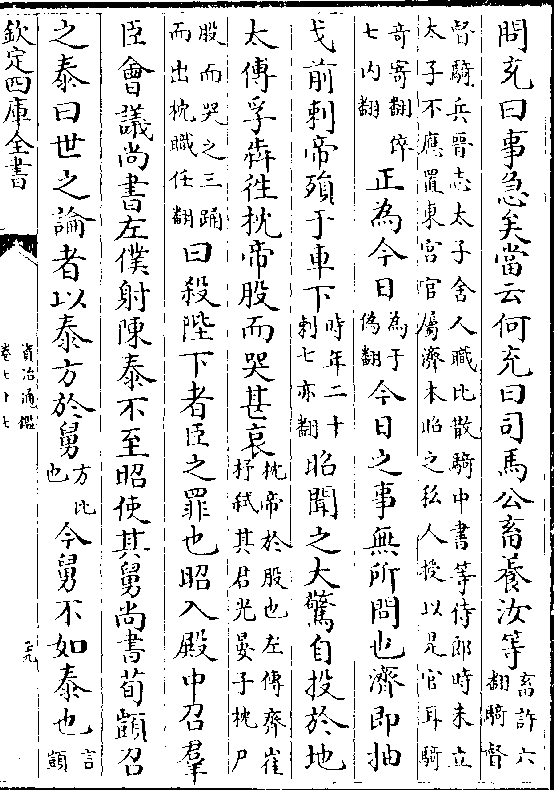 問充曰事急矣當云何充曰司馬公畜養汝等畜許六翻騎督
督騎兵晉志太子舍人職比散騎中書等侍郎時未立
太子不應置東宮官屬濟本昭之私人授以是官耳騎
奇寄翻倅七内翻正為今日為于偽翻今日之事無所問也濟即抽
戈前刺帝殞于車下時年二十刺七亦翻昭聞之大驚自投於地
太傅孚犇往枕帝股而哭甚哀枕帝於股也左傳齊崔杼弑其君光晏子枕尸
股而哭之三踊而出枕職任翻曰殺陛下者臣之罪也昭入殿中召羣
臣會議尚書左僕射陳泰不至昭使其舅尚書荀顗召
之泰曰世之論者以泰方於舅方比也今舅不如泰也言顗
欽定四庫全書
資治通鑑
卷七十七